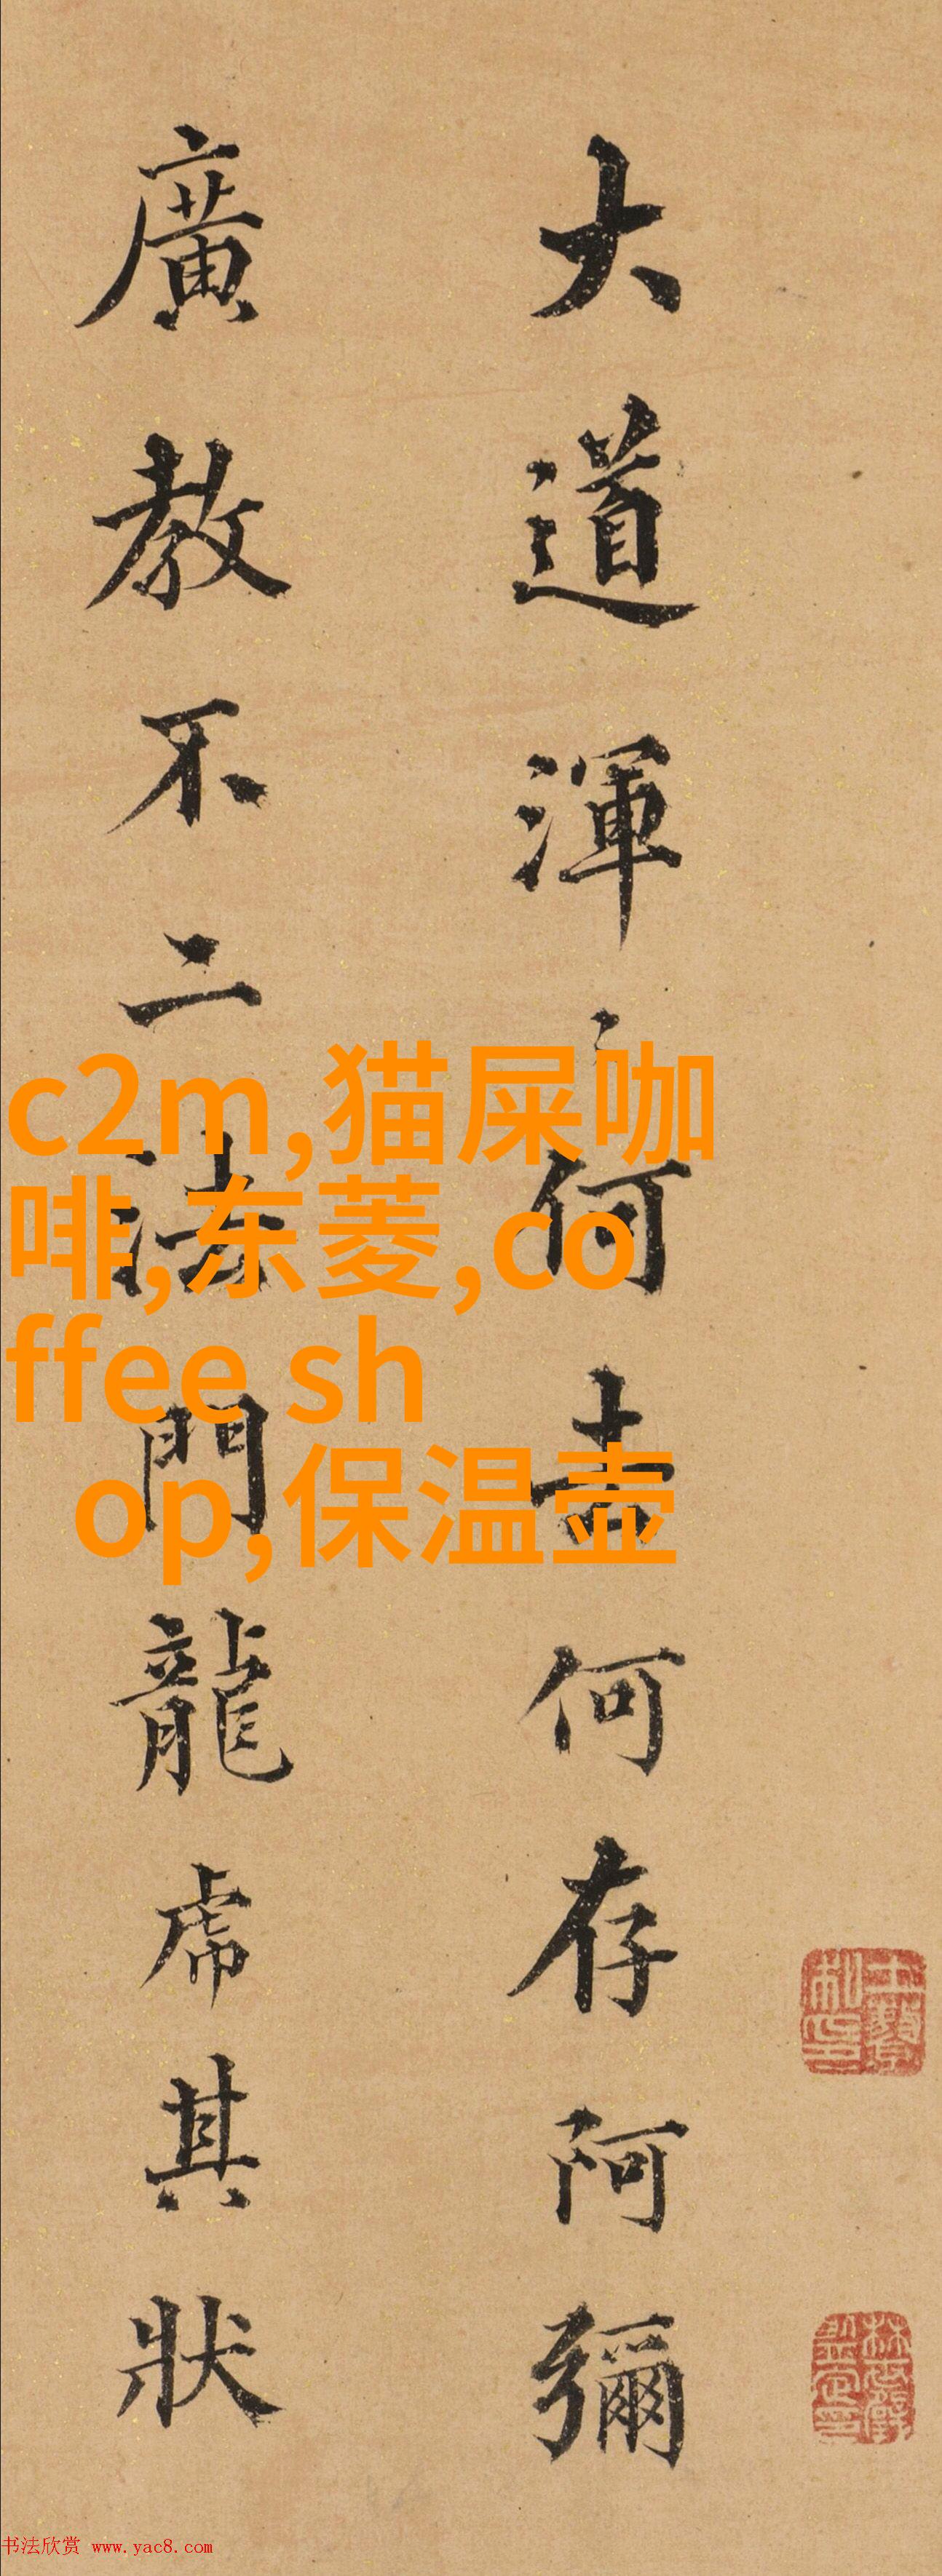 大道渾〻何去何存阿彌
廣教不二法門龍虎其狀
c2m,猫屎咖
啡,东菱,co
ffee sh
op,保温壶
书法欣赏 www.yac8.com